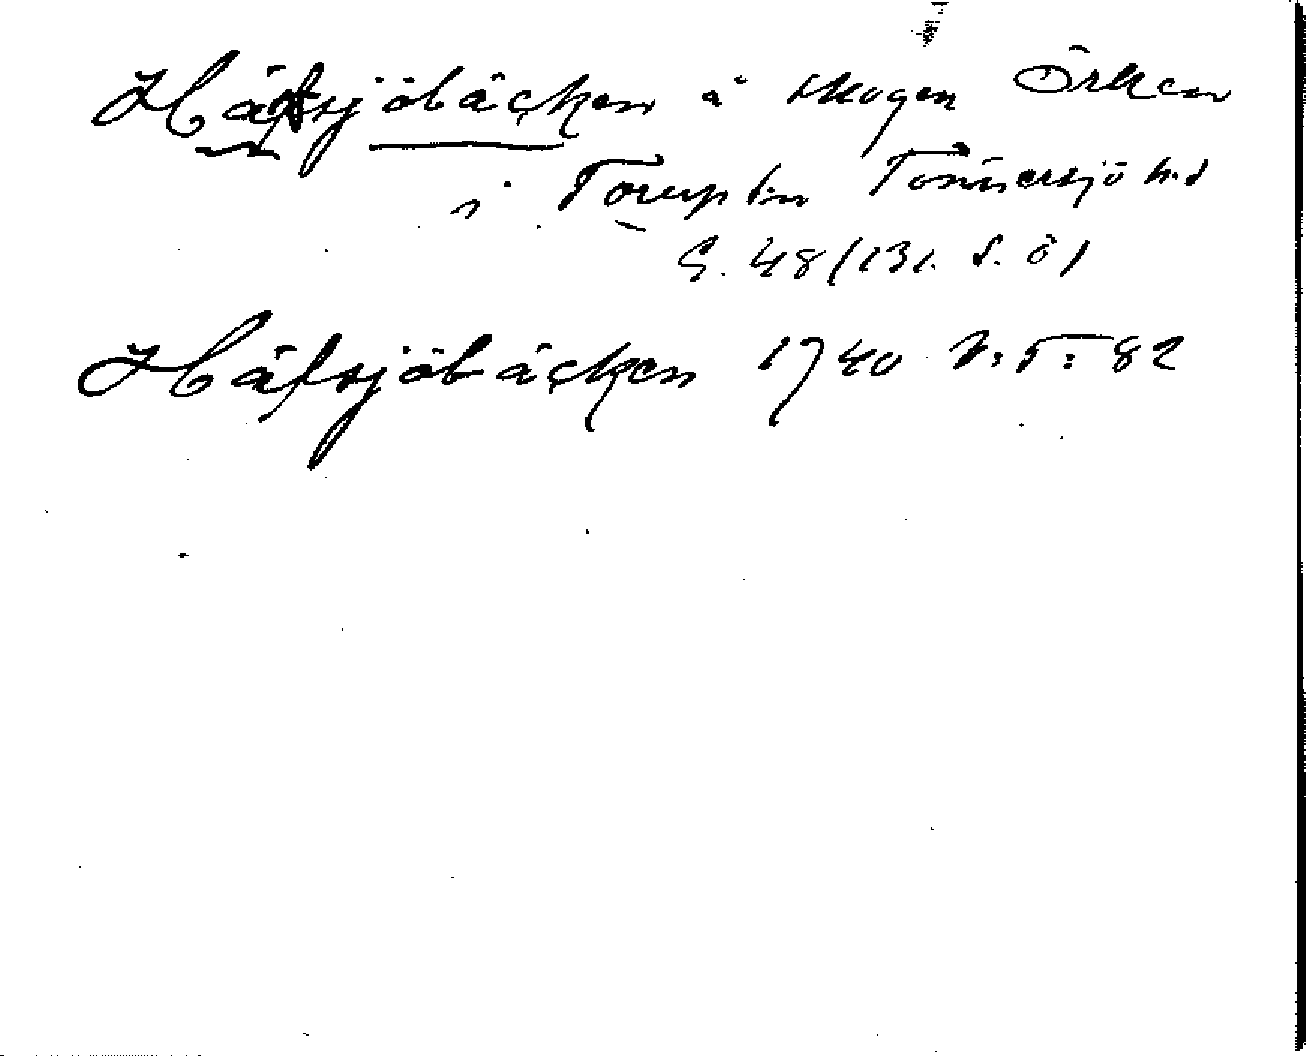 Häfsjöbäcken å skogen Örken
i Torup sn Tönnersjö hd
G. 48 (131. S. Ö)
Häfsjöbäcken 1740 82